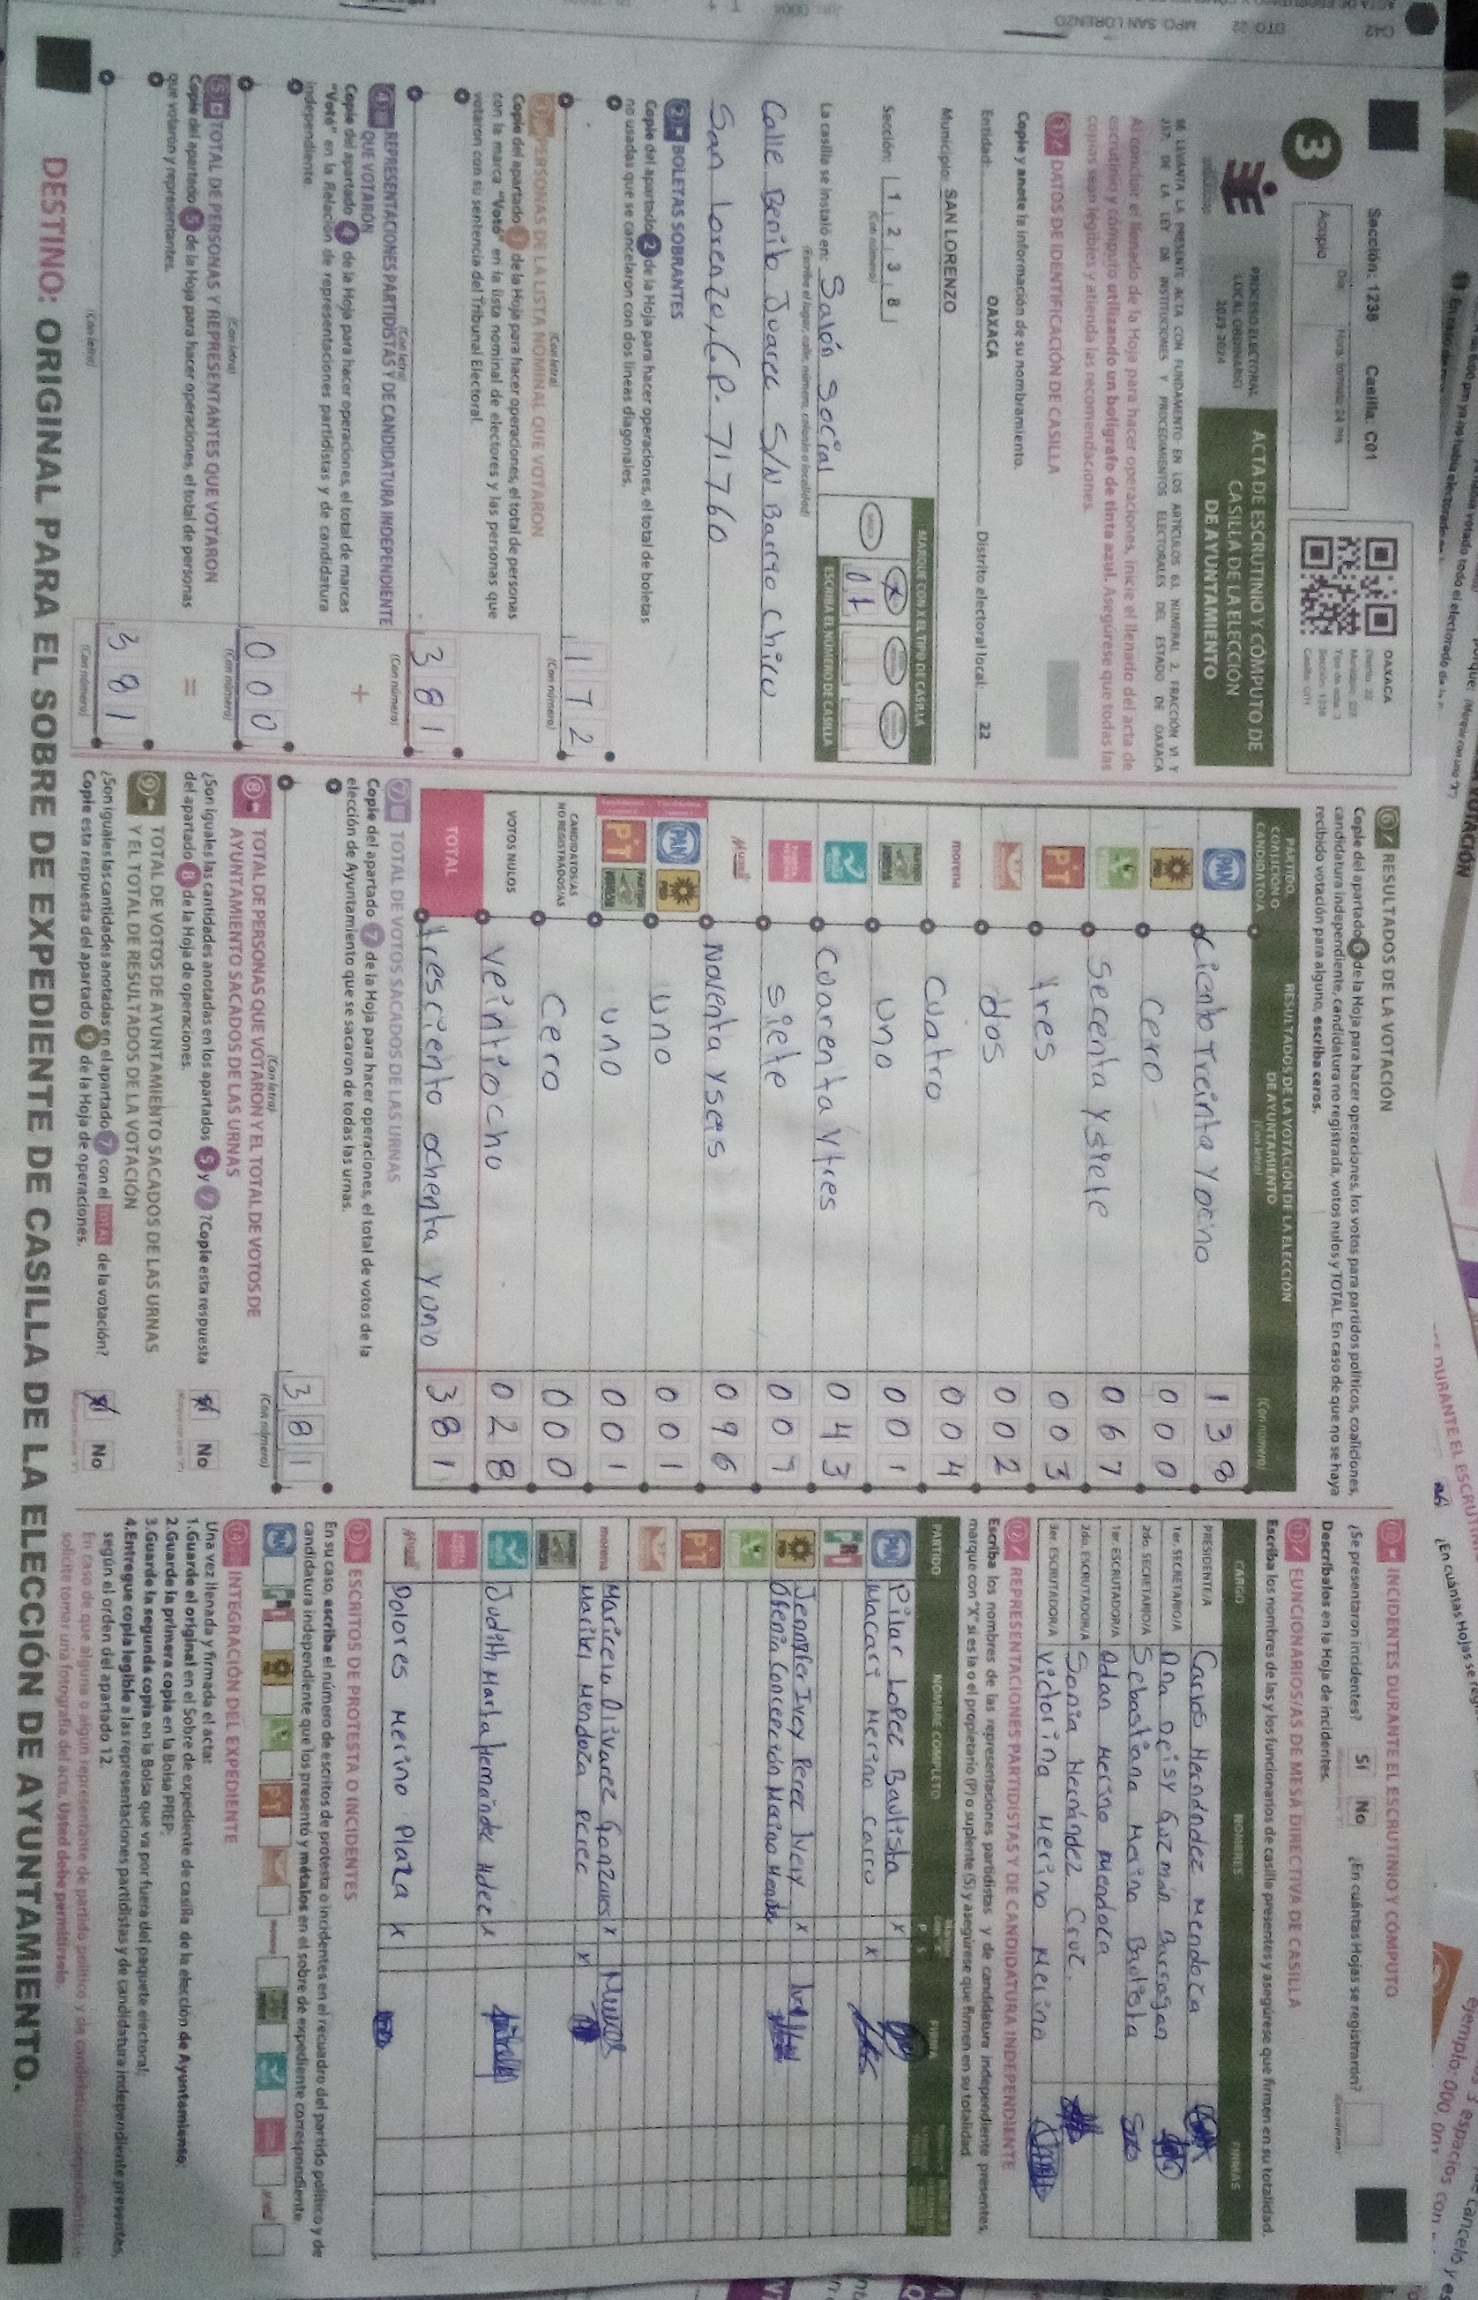 Sección: 1238 Casilla: C01
Acopio
Día
3
PROCESO ELECTORAL
LOCAL ORDINARIO
2023-2024
OAXACA
ACTA DE ESCRUTINIO Y CÓMPUTO DE
CASILLA DE LA ELECCIÓN
DE AYUNTAMIENTO
SE LEVANTA LA PRESENTE ACTA CON FUNDAMENTO EN LOS ARTÍCULOS 63, NUMERAL 2, FRACCIÓN VI Y
237, DE LA LEY DE INSTITUCIONES Y PROCEDIMIENTOS ELECTORALES DEL ESTADO DE OAXACA
Al concluir el llenado de la Hoja para hacer operaciones, inicie el llenado del acta de
escrutinio y cómputo utilizando un bolígrafo de tinta azul. Asegúrese que todas las
copias sean legibles y atienda las recomendaciones.
1 DATOS DE IDENTIFICACIÓN DE CASILLA
Copie y anote la información de su nombramiento.
Entidad: OAXACA Distrito electoral local: 22
Municipio: SAN LORENZO
Sección: 1 2 3 8
(Con número)
MARQUE CON X EL TIPO DE CASILLA
X
ESCRIBA EL NÚMERO DE CASILLA
01
La casilla se instaló en: Salón Social
(Escriba el lugar, calle, número, colonia o localidad)
Calle Benito Juarez S/N Barrio Chico
San Lorenzo, C.P. 71760
2 BOLETAS SOBRANTES
Copie del apartado 2 de la Hoja para hacer operaciones, el total de boletas
no usadas que se cancelaron con dos líneas diagonales.
172
(Con letra) (Con número)
3 PERSONAS DE LA LISTA NOMINAL QUE VOTARON
Copie del apartado 3 de la Hoja para hacer operaciones, el total de personas
con la marca "Votó" en la lista nominal de electores y las personas que
votaron con su sentencia del Tribunal Electoral.
381
(Con letra) (Con número)
4 REPRESENTACIONES PARTIDISTAS Y DE CANDIDATURA INDEPENDIENTE
QUE VOTARON
Copie del apartado 4 de la Hoja para hacer operaciones, el total de marcas
"Votó" en la Relación de representaciones partidistas y de candidatura
independiente.
+
000
(Con letra) (Con número)
5 TOTAL DE PERSONAS Y REPRESENTANTES QUE VOTARON
Copie del apartado 5 de la Hoja para hacer operaciones, el total de personas
que votaron y representantes.
=
381
(Con letra) (Con número)
6 RESULTADOS DE LA VOTACIÓN
Copie del apartado 6 de la Hoja para hacer operaciones, los votos para partidos políticos, coaliciones,
candidatura independiente, candidatura no registrada, votos nulos y TOTAL. En caso de que no se haya
recibido votación para alguno, escriba ceros.
PARTIDO, COALICIÓN O CANDIDATO/A
RESULTADOS DE LA VOTACIÓN DE LA ELECCIÓN DE AYUNTAMIENTO
(Con letra) (Con número)
PAN Ciento Treinta Y ocho 138
PRD Cero 000
Secenta Y siete 067
PT tres 003
dos 002
morena cuatro 004
uno 001
Cuarenta Y tres 043
siete 007
Noventa Y seis 096
PAN PRD uno 001
PT uno 001
CANDIDATOS/AS NO REGISTRADOS/AS cero 000
VOTOS NULOS veintiocho 028
TOTAL tresciento ochenta Y uno 381
7 TOTAL DE VOTOS SACADOS DE LAS URNAS
Copie del apartado 7 de la Hoja para hacer operaciones, el total de votos de la
elección de Ayuntamiento que se sacaron de todas las urnas.
381
(Con letra) (Con número)
8 TOTAL DE PERSONAS QUE VOTARON Y EL TOTAL DE VOTOS DE
AYUNTAMIENTO SACADOS DE LAS URNAS
¿Son iguales las cantidades anotadas en los apartados 5 y 7? Copie esta respuesta
del apartado 8 de la Hoja de operaciones.
Sí No
9 TOTAL DE VOTOS DE AYUNTAMIENTO SACADOS DE LAS URNAS
Y EL TOTAL DE RESULTADOS DE LA VOTACIÓN
¿Son iguales las cantidades anotadas en el apartado 7 con el TOTAL de la votación?
Copie esta respuesta del apartado 9 de la Hoja de operaciones.
Sí No
10 INCIDENTES DURANTE EL ESCRUTINIO Y CÓMPUTO
¿Se presentaron incidentes? Sí No ¿En cuántas Hojas se registraron?
Descríbalos en la Hoja de incidentes.
11 FUNCIONARIOS/AS DE MESA DIRECTIVA DE CASILLA
Escriba los nombres de las y los funcionarios de casilla presentes y asegúrese que firmen en su totalidad.
CARGO NOMBRES FIRMAS
PRESIDENTE/A Carlos Hernández Mendoza
1er. SECRETARIO/A Ana Deisy Guzmán Barragan
2do. SECRETARIO/A Sebastiana Merino Bautista
1er. ESCRUTADOR/A Adan Merino Mendoza
2do. ESCRUTADOR/A Sonia Hernández Cruz.
3er. ESCRUTADOR/A Victorina Merino Merino
12 REPRESENTACIONES PARTIDISTAS Y DE CANDIDATURA INDEPENDIENTE
Escriba los nombres de las representaciones partidistas y de candidatura independiente presentes,
marque con "X" si es la o el propietario (P) o suplente (S) y asegúrese que firmen en su totalidad
PARTIDO NOMBRE COMPLETO P S FIRMA
PAN Pilar Lopez Bautista X
Macari Merino Carro X
Jennifer Ivey Perez Ivery X
Maricruz Olivarez Gonzales X
morena Maribel Mendoza Perez X
Judith Marla Hernández X
Dolores Merino Plaza X
13 ESCRITOS DE PROTESTA O INCIDENTES
En su caso, escriba el número de escritos de protesta o incidentes en el recuadro del partido político y de
candidatura independiente que los presentó y métalos en el sobre de expediente correspondiente.
14 INTEGRACIÓN DEL EXPEDIENTE
Una vez llenada y firmada el acta:
1.Guarde el original en el Sobre de expediente de casilla de la elección de Ayuntamiento;
2.Guarde la primera copia en la Bolsa PREP;
3.Guarde la segunda copia en la Bolsa que va por fuera del paquete electoral;
4.Entregue copia legible a las representaciones partidistas y de candidatura independiente presentes,
según el orden del apartado 12.
En caso de que alguna o algún representante de partido político y de candidatura independiente
solicite tomar una fotografía del acta, Usted debe permitírselo.
DESTINO: ORIGINAL PARA EL SOBRE DE EXPEDIENTE DE CASILLA DE LA ELECCIÓN DE AYUNTAMIENTO.